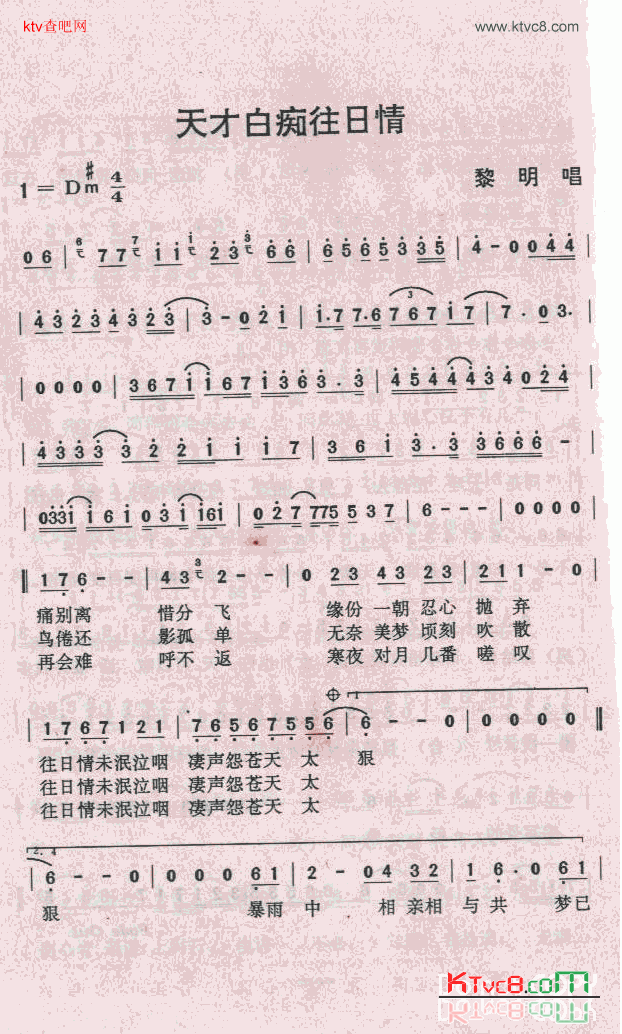 ktv查吧网
www.ktvc8.com
天才白痴往日情
1 = D#m 4/4
黎 明 唱
06 | 6 77 7 ii i 23 3 66 | 6 56533 5 | 4 - 0 0 4 4 |
| 4 3 2 3 4 3 2 3 | 3 - 0 2 i | i.7 7.6 7 6 7 i 7 | 7 . 0 3. |
| 0 0 0 0 | 3 6 7 i i 6 7 i 3 6 3 . 3 | 4 5 4 4 4 3 4 0 2 4 |
| 4 3 3 3 3 3 2 2 i i 7 | 3 6 i 3 . 3 3 6 6 6 - |
| 033i i 6 i 0 3 i i6i | 0 2 7 775 5 3 7 | 6 - - - | 0 0 0 0 |
‖ 1 7 6 - - | 4 3 3 2 - - | 0 23 43 23 | 21 1 - 0 |
痛别离 惜分飞 缘份一朝忍心抛弃
鸟倦还 影孤单 无奈美梦顷刻吹散
再会难 呼不返 寒夜对月几番嗟叹
| 1 7 6 7 1 2 1 | 7 6 5 6 7 5 5 6 | 6 - - 0 | 0 0 0 0 ‖
往日情未泯泣咽 凄声怨苍天太 狠
往日情未泯泣咽 凄声怨苍天太
往日情未泯泣咽 凄声怨苍天太
2. 4
| 6 - - 0 | 0 0 0 61 | 2 - 04 32 | 1 6 . 0 61 |
狠 暴雨中 相亲相与共 梦已
KTvc8.com